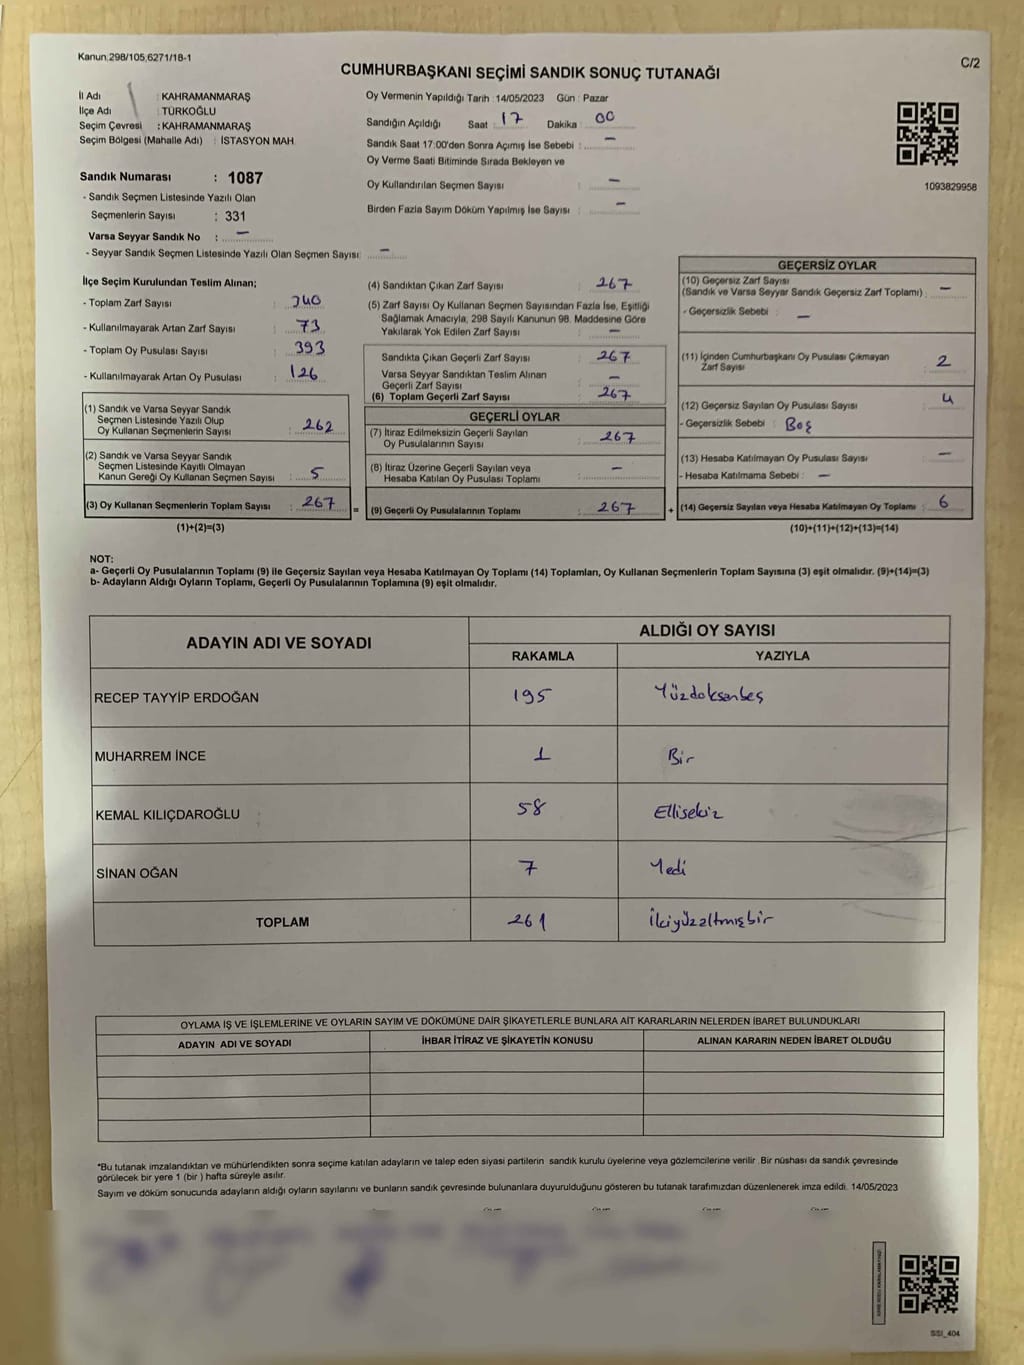 Kanun:298/105,6271/18-1
C/2
CUMHURBAŞKANI SEÇİMİ SANDIK SONUÇ TUTANAĞI
İl Adı : KAHRAMANMARAŞ
İlçe Adı : TÜRKOĞLU
Seçim Çevresi : KAHRAMANMARAŞ
Seçim Bölgesi (Mahalle Adı) : İSTASYON MAH.
Sandık Numarası : 1087
- Sandık Seçmen Listesinde Yazılı Olan
Seçmenlerin Sayısı : 331
Varsa Seyyar Sandık No : –
- Seyyar Sandık Seçmen Listesinde Yazılı Olan Seçmen Sayısı: –
Oy Vermenin Yapıldığı Tarih :14/05/2023 Gün : Pazar
Sandığın Açıldığı Saat 17 Dakika 00
Sandık Saat 17:00'den Sonra Açımış İse Sebebi : –
Oy Verme Saati Bitiminde Sırada Bekleyen ve
Oy Kullandırılan Seçmen Sayısı : –
Birden Fazla Sayım Döküm Yapılmış İse Sayısı : –
1093829958
İlçe Seçim Kurulundan Teslim Alınan;
- Toplam Zarf Sayısı : 340
- Kullanılmayarak Artan Zarf Sayısı : 73
- Toplam Oy Pusulası Sayısı : 393
- Kullanılmayarak Artan Oy Pusulası : 126
(1) Sandık ve Varsa Seyyar Sandık
Seçmen Listesinde Yazılı Olup
Oy Kullanan Seçmenlerin Sayısı : 262
(2) Sandık ve Varsa Seyyar Sandık
Seçmen Listesinde Kayıtlı Olmayan
Kanun Gereği Oy Kullanan Seçmen Sayısı : 5
(3) Oy Kullanan Seçmenlerin Toplam Sayısı : 267 =
(1)+(2)=(3)
(4) Sandıktan Çıkan Zarf Sayısı : 267
(5) Zarf Sayısı Oy Kullanan Seçmen Sayısından Fazla İse, Eşitliği
Sağlamak Amacıyla, 298 Sayılı Kanunun 98. Maddesine Göre
Yakılarak Yok Edilen Zarf Sayısı : –
Sandıkta Çıkan Geçerli Zarf Sayısı : 267
Varsa Seyyar Sandıktan Teslim Alınan
Geçerli Zarf Sayısı : –
(6) Toplam Geçerli Zarf Sayısı : 267
GEÇERLİ OYLAR
(7) İtiraz Edilmeksizin Geçerli Sayılan
Oy Pusulalarının Sayısı : 267
(8) İtiraz Üzerine Geçerli Sayılan veya
Hesaba Katılan Oy Pusulası Toplamı : –
(9) Geçerli Oy Pusulalarının Toplamı : 267 +
GEÇERSİZ OYLAR
(10) Geçersiz Zarf Sayısı
(Sandık ve Varsa Seyyar Sandık Geçersiz Zarf Toplamı) : –
- Geçersizlik Sebebi : –
(11) İçinden Cumhurbaşkanı Oy Pusulası Çıkmayan
Zarf Sayısı : 2
(12) Geçersiz Sayılan Oy Pusulası Sayısı : 4
- Geçersizlik Sebebi : Boş
(13) Hesaba Katılmayan Oy Pusulası Sayısı : –
- Hesaba Katılmama Sebebi : –
(14) Geçersiz Sayılan veya Hesaba Katılmayan Oy Toplamı : 6
(10)+(11)+(12)+(13)=(14)
NOT:
a- Geçerli Oy Pusulalarının Toplamı (9) ile Geçersiz Sayılan veya Hesaba Katılmayan Oy Toplamı (14) Toplamları, Oy Kullanan Seçmenlerin Toplam Sayısına (3) eşit olmalıdır. (9)+(14)=(3)
b- Adayların Aldığı Oyların Toplamı, Geçerli Oy Pusulalarının Toplamına (9) eşit olmalıdır.
ADAYIN ADI VE SOYADI
ALDIĞI OY SAYISI
RAKAMLA YAZIYLA
RECEP TAYYİP ERDOĞAN 195 Yüzdoksanbeş
MUHARREM İNCE 1 Bir
KEMAL KILIÇDAROĞLU 58 Ellisekiz
SİNAN OĞAN 7 Yedi
TOPLAM 261 İkiyüzaltmışbir
OYLAMA İŞ VE İŞLEMLERİNE VE OYLARIN SAYIM VE DÖKÜMÜNE DAİR ŞİKAYETLERLE BUNLARA AİT KARARLARIN NELERDEN İBARET BULUNDUKLARI
ADAYIN ADI VE SOYADI İHBAR İTİRAZ VE ŞİKAYETİN KONUSU ALINAN KARARIN NEDEN İBARET OLDUĞU
*Bu tutanak imzalandıktan ve mühürlendikten sonra seçime katılan adayların ve talep eden siyasi partilerin sandık kurulu üyelerine veya gözlemcilerine verilir .Bir nüshası da sandık çevresinde
görülecek bir yere 1 (bir ) hafta süreyle asılır.
Sayım ve döküm sonucunda adayların aldığı oyların sayılarını ve bunların sandık çevresinde bulunanlara duyurulduğunu gösteren bu tutanak tarafımızdan düzenlenerek imza edildi. 14/05/2023
SSI_404